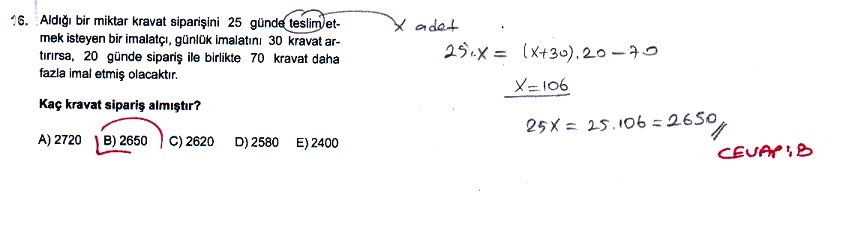 16. Aldığı bir miktar kravat siparişini 25 günde teslim et-
mek isteyen bir imalatçı, günlük imalatını 30 kravat ar-
tırırsa, 20 günde sipariş ile birlikte 70 kravat daha
fazla imal etmiş olacaktır.
Kaç kravat sipariş almıştır?
A) 2720 B) 2650 C) 2620 D) 2580 E) 2400
x adet
25.x = (x+30).20-70
x=106
25x = 25.106 = 2650
CEVAP: B